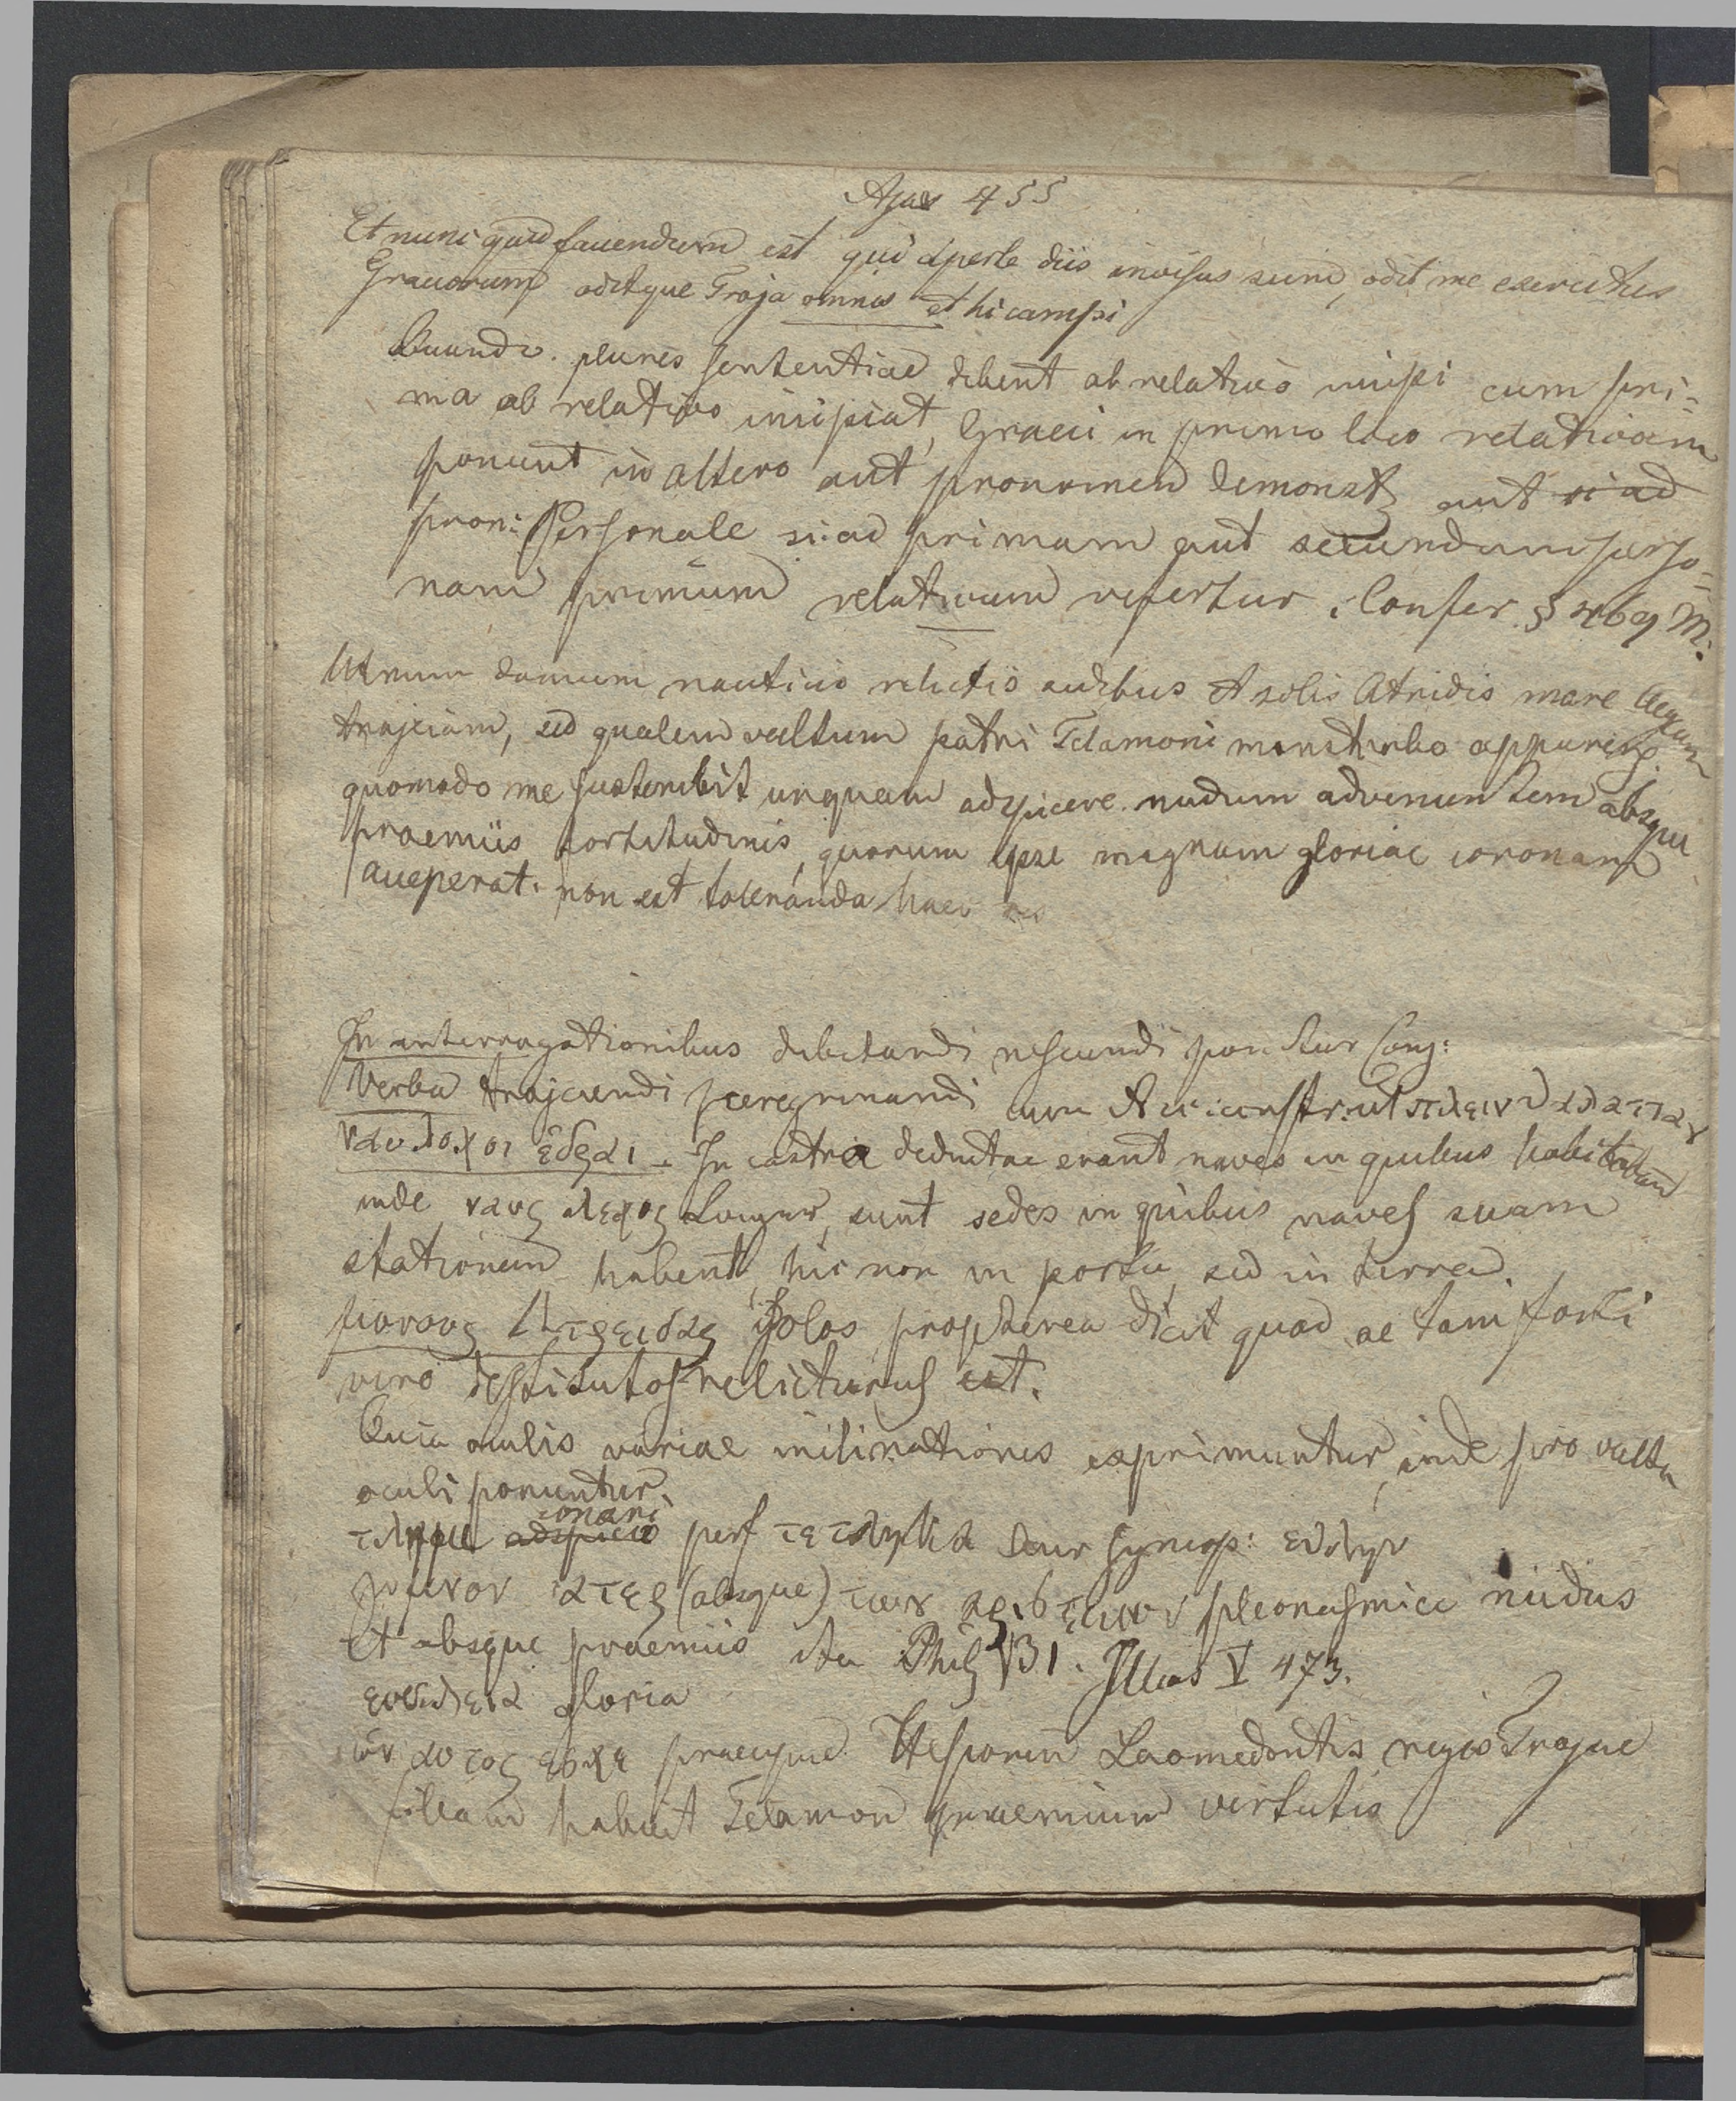 Ajax 455
Et nunc quid faciendum est qui aperte diis invisus sum, odit me exercitus
Graecorum oditque Troja omnis et hi campi
Quando plures sententiae debent ab relativo incipi cum pri=
ma ab relativo incipiat, Graeci in primo loco relativum
ponunt in altero aut pronomen demonstr aut si ad
pron: Personale si ad primam aut secundam perso=
nam primum relativum refertur. Confer § 469 M.
Utrum domum nauticis relictis sedibus et solis Atridis mare Aegeum
trajiciam, sed qualem vultum patri Telamoni monstrabo apparens.
quomodo me sustinebit unquam adspicere nudum advenientem absque
praemiis fortitudinis, quorum ipse magnam gloriae coronam
acceperat. non est toleranda haec res
In interrogationibus dubitandi nesciendi ponitur Conj:
Verba trajiciendi peregrinandi cum Acc: constr. ut πλειν θαλατταν
ναυλοχοι εδραι - In castra deductae erant naves in quibus habitabant
inde ναυς λεχος Locus, sunt sedes in quibus naves suam
stationem habent, hic non in portu, sed in terra.
μονους Ατρειδας solos propterea dicit quod se tam forti
viro destitutos relicturus est.
Quia oculis variae inclinationes exprimuntur, inde pro vultu
oculi ponuntur.
conari
τλημι adspicio perf τετληκα Aor syncop: ετλην
γυμνον ατερ (absque) των αριστειων pleonasmice nudus
et absque praemiis ita Phil 31. Illias V 473.
ευκλεια gloria
ων αυτος εσχε praecipue Hesionen Laomedontis regis Trojae
filiam habuit Telamon praemium virtutis